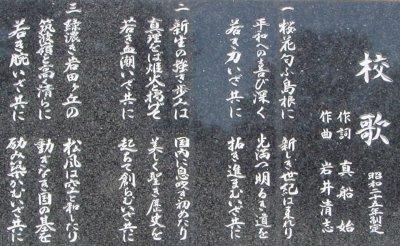 校歌
昭和二十五年制定
作詞 真船 始
作曲 岩井清志
一 桜花匂ふ島根に 新しき世紀は来たり
平和への喜び深く 光満つ明るき道を
若き力いざ共に 拓き進まむいざ共に
二 新生の強き歩みは 国内に息吹き初めたり
真理をば炬火と 美しく聖き歴史を
若き血潮いざ共に 起ちて創らむいざ共に
三 緑濃き岩田ヶ丘の 松風は空と和したり
筑波嶺と高清らに 動きなき国の基を
若き腕いざ共に 励み築かむいざ共に